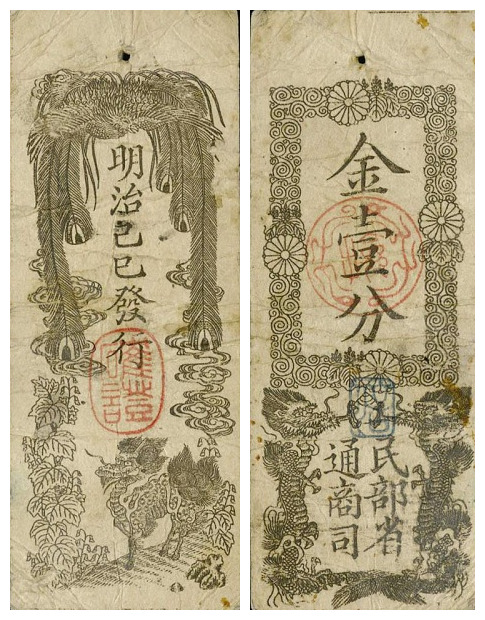 明治己巳發行
金壹分
民部省
通商司